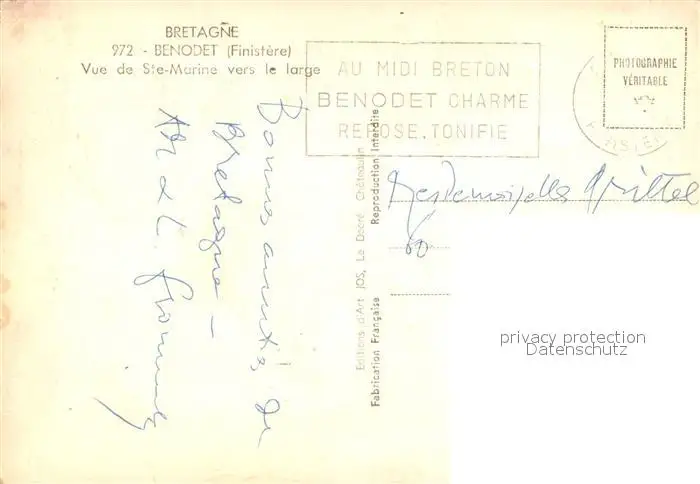 BRETAGNE
972 - BENODET (Finistère)
Vue de Ste-Marine vers le large
AU MIDI BRETON
BENODET CHARME
REPOSE, TONIFIE
PHOTOGRAPHIE
VÉRITABLE
Bonnes amitiés de
Bretagne -
Mesdemoiselles
60
Editions d'Art JOS, Le Doaré, Châteaulin
Reproduction Interdite
Fabrication Française
privacy protection
Datenschutz